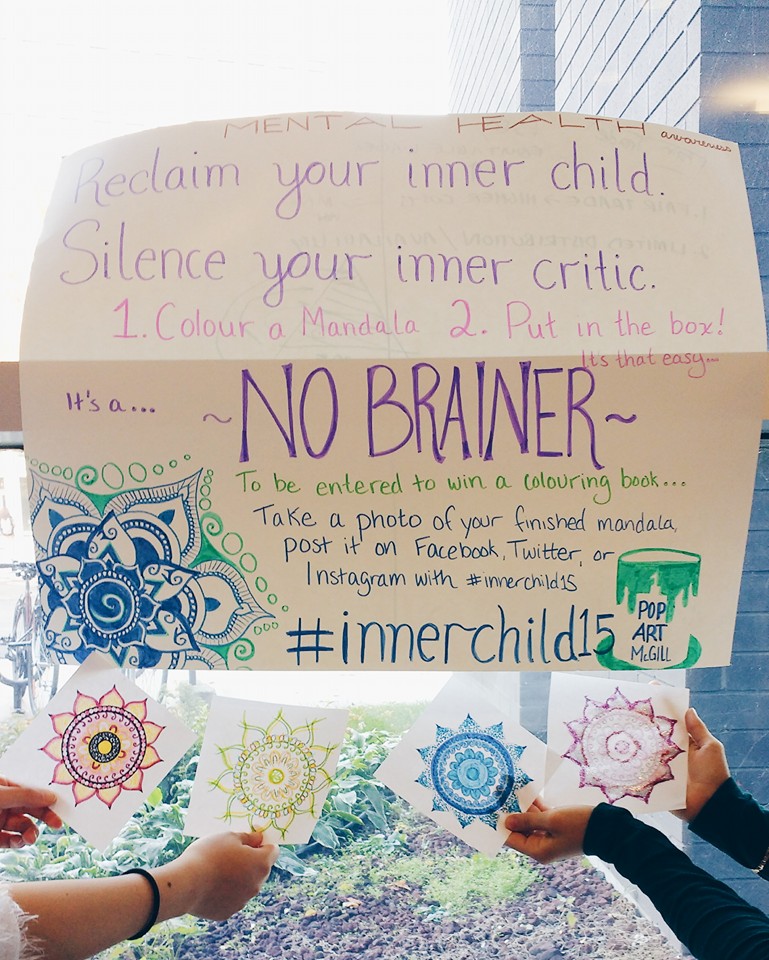 MENTAL HEALTH awareness
Reclaim your inner child.
Silence your inner critic.
1. Colour a Mandala 2. Put in the box!
It's that easy...
It's a...
~NO BRAINER~
To be entered to win a colouring book...
Take a photo of your finished mandala,
post it on Facebook, Twitter, or
Instagram with #innerchild15
#innerchild15
POP
ART
McGILL